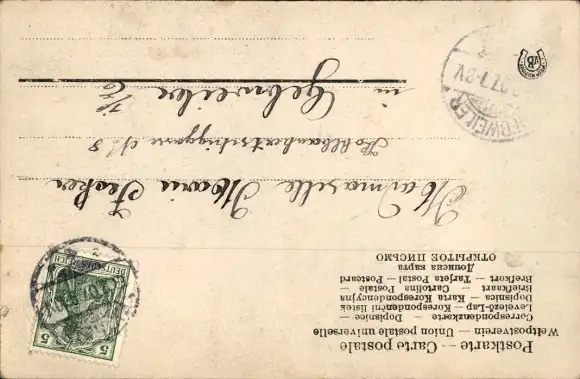 Postkarte — Carte postale
Weltpostverein — Union postale universelle
Correspondenzkarte — Dopisnice —
Levelező-Lap — Korespondenční lístek
Dopisnica — Karta Korespondencyjna
Briefkaart — Cartolina Postale —
Brefkort — Tarjeta Postal — Postcard
Дописна карта
ОТКРЫТОЕ ПИСЬМО
Mademoiselle Marie
N° 8
in Gebweiler
DEUTSCHES REICH
5 5
GEBWEILER
7-8V